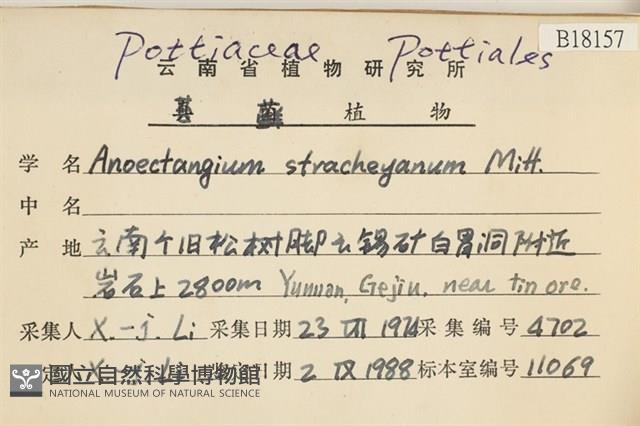 Pottiaceae Pottiales B18157
云南省植物研究所
藓 植 物
学 名 Anoectangium stracheyanum Mitt.
中 名
产 地 云南个旧松树脚云锡矿白胃洞附近
岩石上 2800m Yunnan, Gejiu, near tin ore.
采集人 X.-j. Li 采集日期 23 VII 1974 采集编号 4702
定人 X.-j. Li 定日期 2 IX 1988 标本室编号 11069
國立自然科學博物館
NATIONAL MUSEUM OF NATURAL SCIENCE